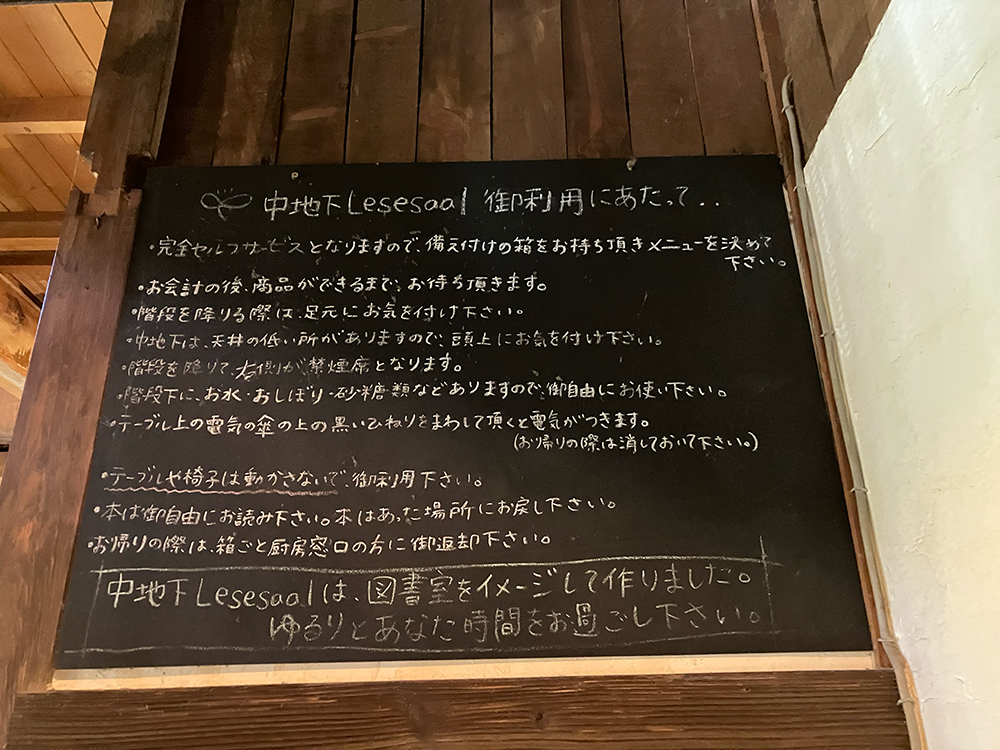 中地下Lesesaal 御利用にあたって..
・完全セルフサービスとなりますので、備え付けの箱をお持ち頂きメニューを決めて
下さい。
・お会計の後、商品ができるまで、お待ち頂きます。
・階段を降りる際は、足元にお気を付け下さい。
・中地下は、天井の低い所がありますので、頭上にお気を付け下さい。
・階段を降りて、右側が禁煙席となります。
・階段下に、お水・おしぼり・砂糖類などありますので、御自由にお使い下さい。
・テーブル上の電気の傘の上の黒いひねりをまわして頂くと電気がつきます。
(お帰りの際は消しておいて下さい。)
・テーブルや椅子は動かさないで、御利用下さい。
・本は御自由にお読み下さい。本はあった場所にお戻し下さい。
・お帰りの際は、箱ごと厨房窓口の方に御返却下さい。
中地下Lesesaalは、図書室をイメージして作りました。
ゆるりとあなた時間をお過ごし下さい。